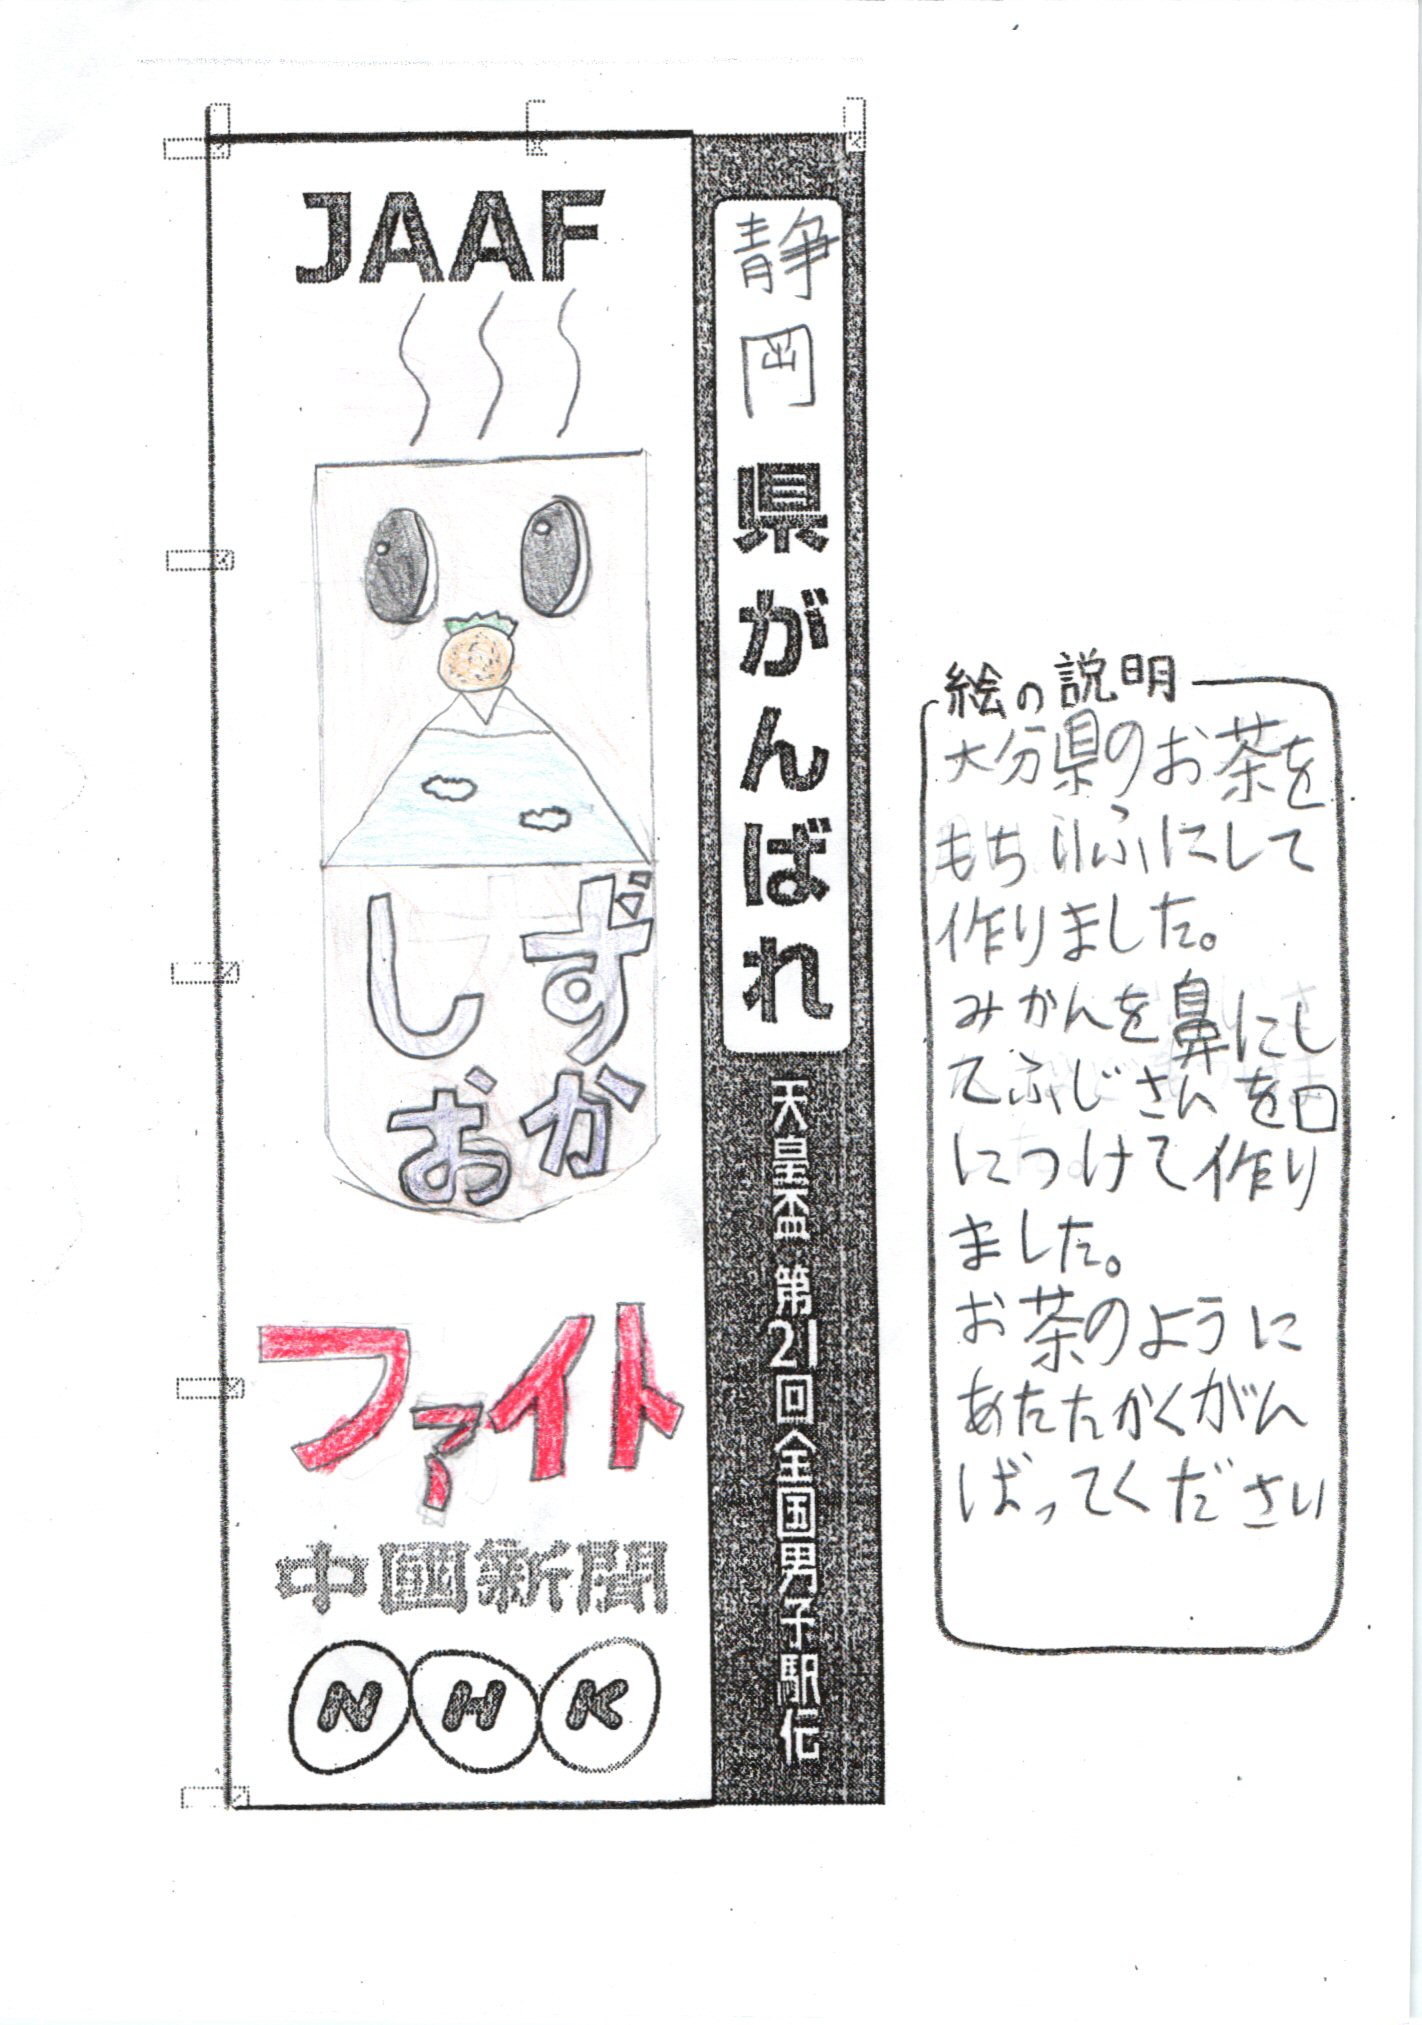 JAAF
静岡県がんばれ
天皇盃 第21回全国男子駅伝
しずおか
ファイト
中國新聞
NHK
絵の説明
大分県のお茶を
もちーふにして
作りました。
みかんを鼻にし
てふじさんを口
につけて作り
ました。
お茶のように
あたたかくがん
ばってください